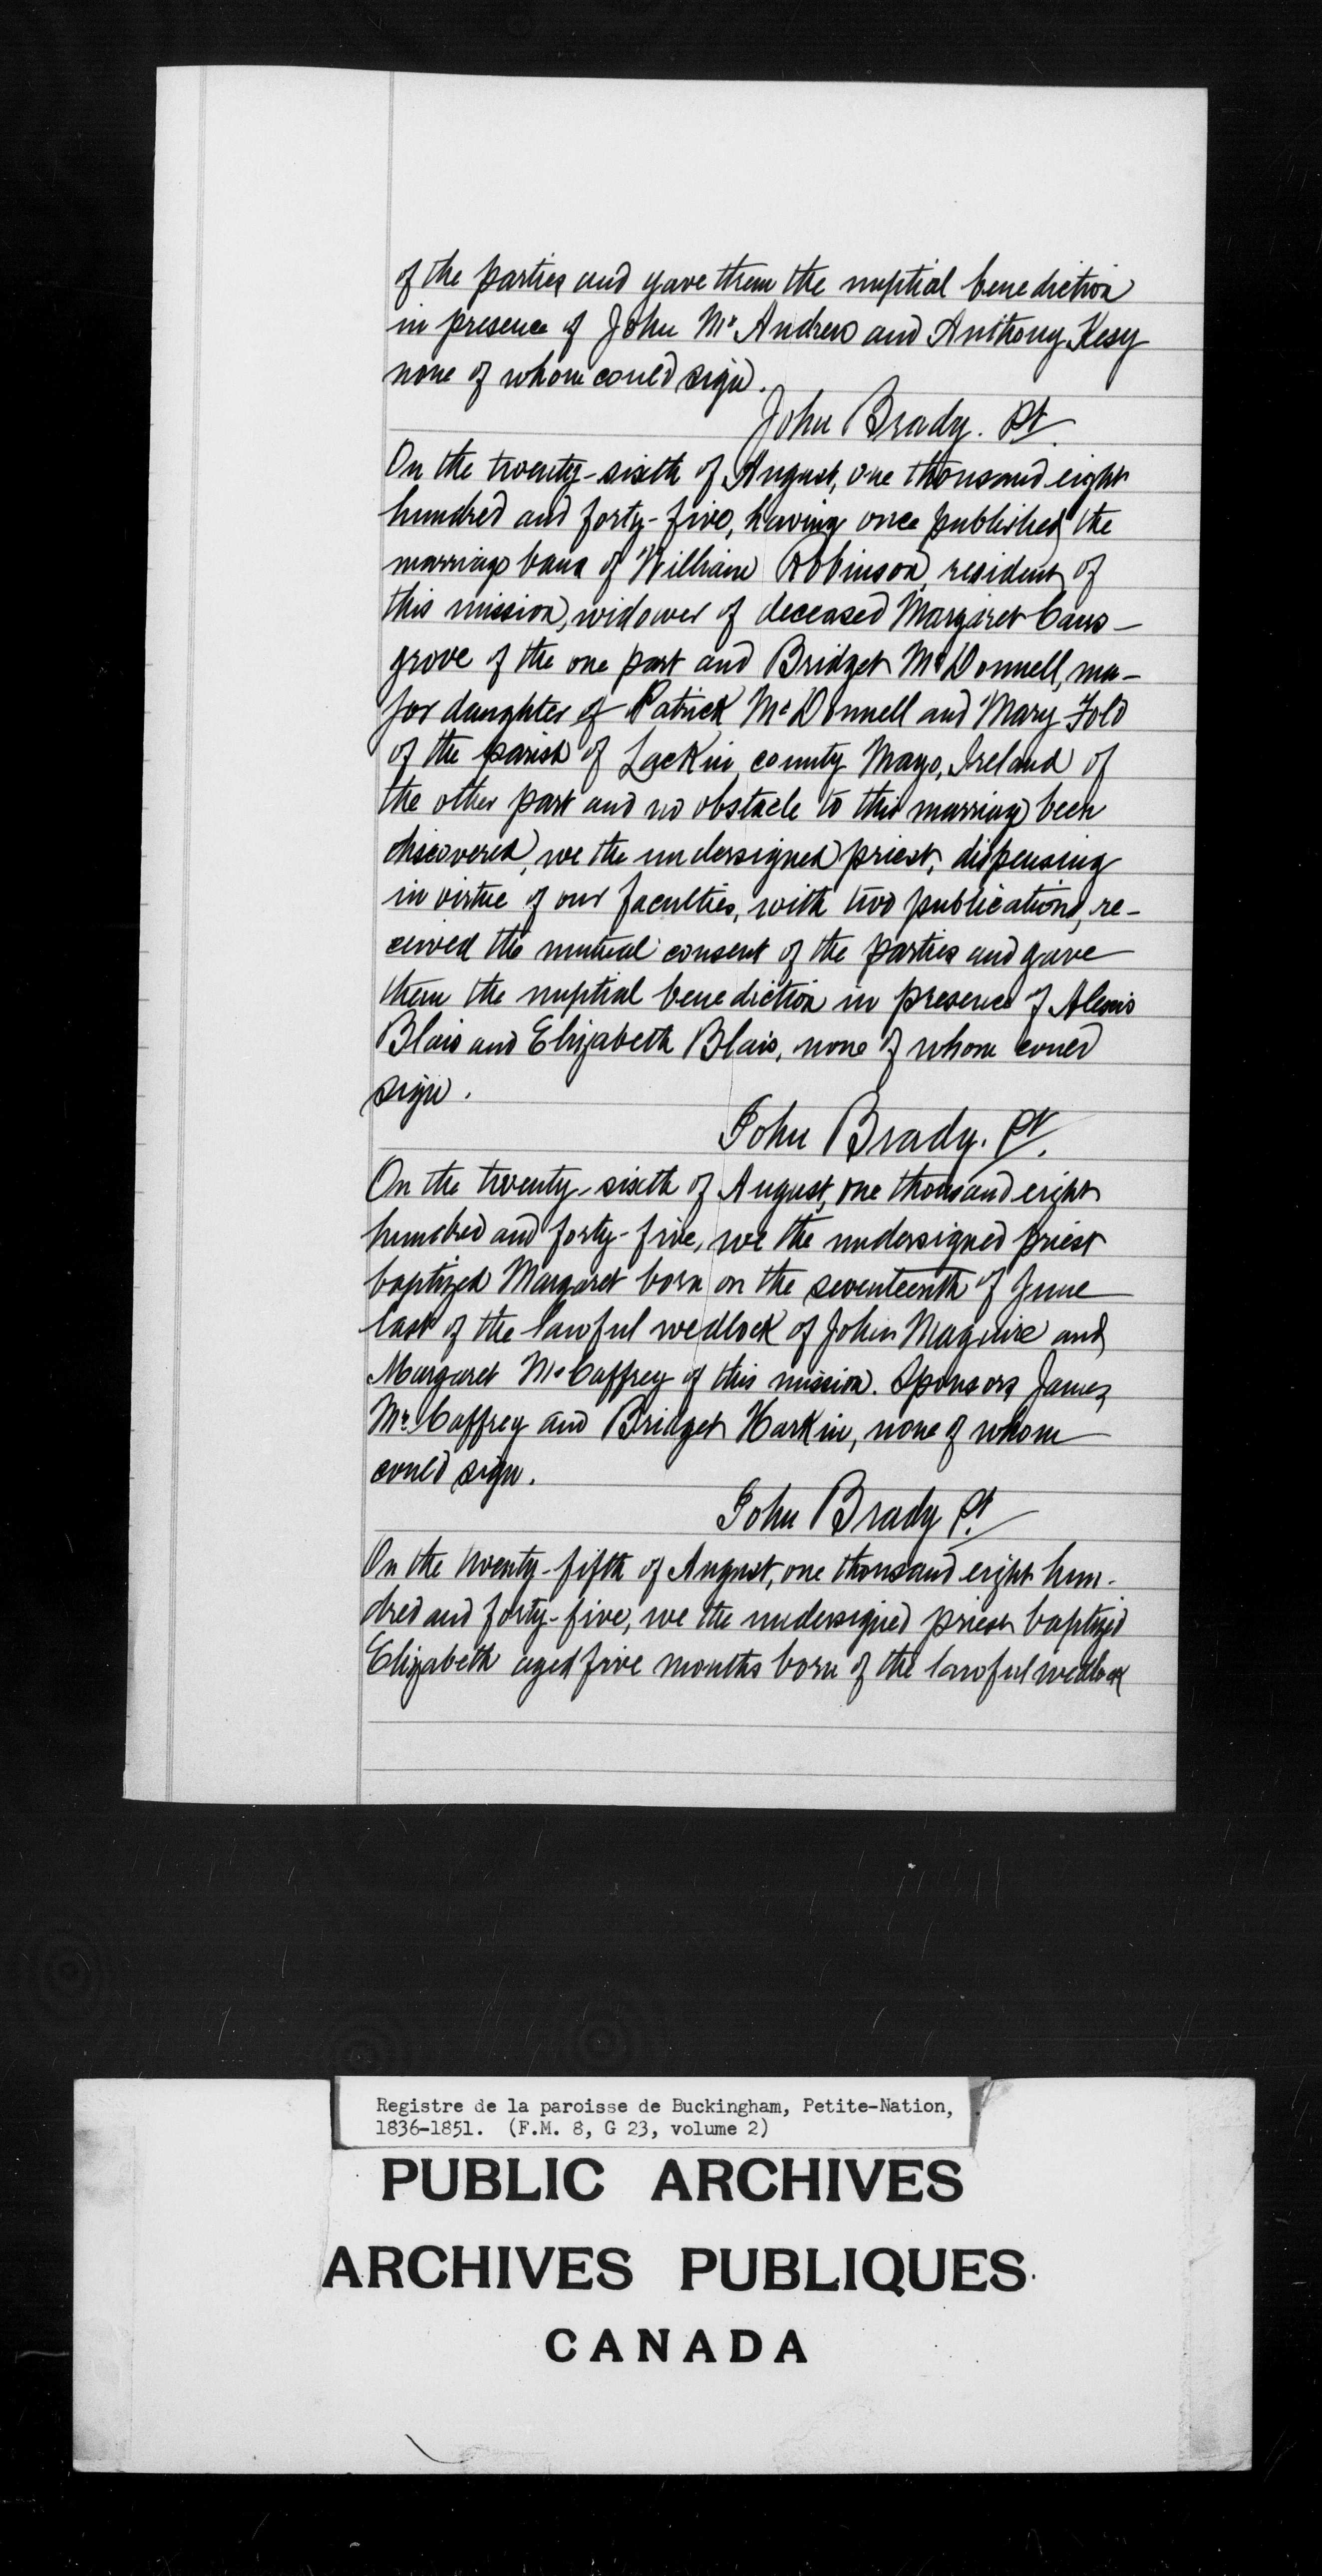 of the parties and gave them the nuptial benediction
in presence of John Mc Andrew and Anthony Kesy
none of whom could sign.
John Brady. Pt.
On the twenty-sixth of August, one thousand eight
hundred and forty-five, having once published the
marriage bans of William Robinson, resident of
this mission, widower of deceased Margaret Cans-
grove of the one part and Bridget Mc Donnell, ma-
jor daughter of Patrick Mc Donnell and Mary Fold
of the parish of Lackin, county Mayo, Ireland of
the other part and no obstacle to this marriage been
discovered, we the undersigned priest, dispensing
in virtue of our faculties, with two publications, re-
ceived the mutual consent of the parties and gave
them the nuptial benediction in presence of Alexis
Blais and Elizabeth Blais, none of whom could
sign.
John Brady. Pt.
On the twenty-sixth of August, one thousand eight
hundred and forty-five, we the undersigned priest
baptized Margaret born on the seventeenth of June
last of the lawful wedlock of John Maguire and
Margaret Mc Caffrey of this mission. Sponsors James
Mc Caffrey and Bridget Harkin, none of whom
could sign.
John Brady Pt.
On the twenty-fifth of August, one thousand eight hun-
dred and forty-five, we the undersigned priest baptized
Elizabeth aged five months born of the lawful wedlock
Registre de la paroisse de Buckingham, Petite-Nation,
1836-1851. (F.M. 8, G 23, volume 2)
PUBLIC ARCHIVES
ARCHIVES PUBLIQUES
CANADA